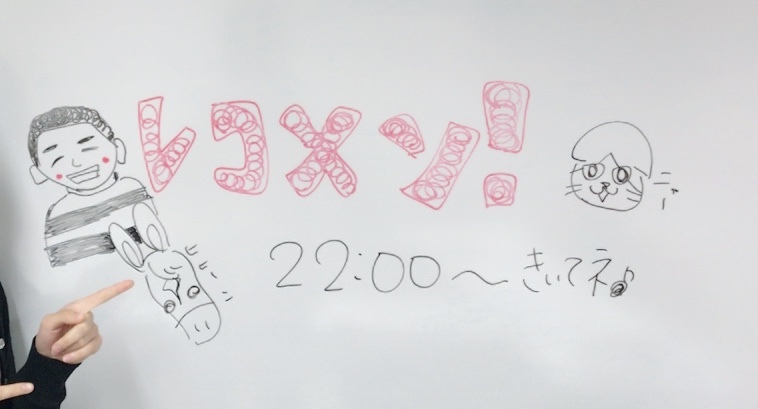 レコメン!
ニャー
ヒヒーン
22:00〜きいてネ♪